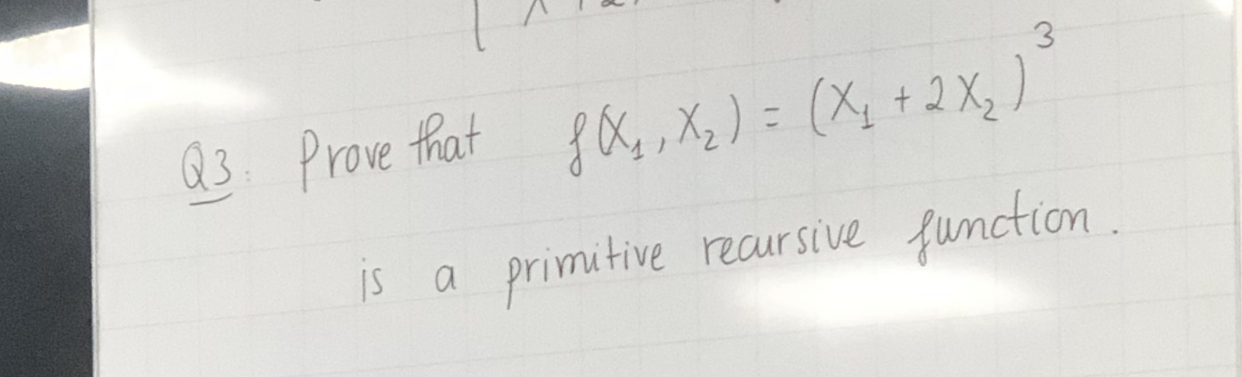 Q3: Prove that f(X₁, X₂) = (X₁ + 2X₂)³
is a primitive recursive function.